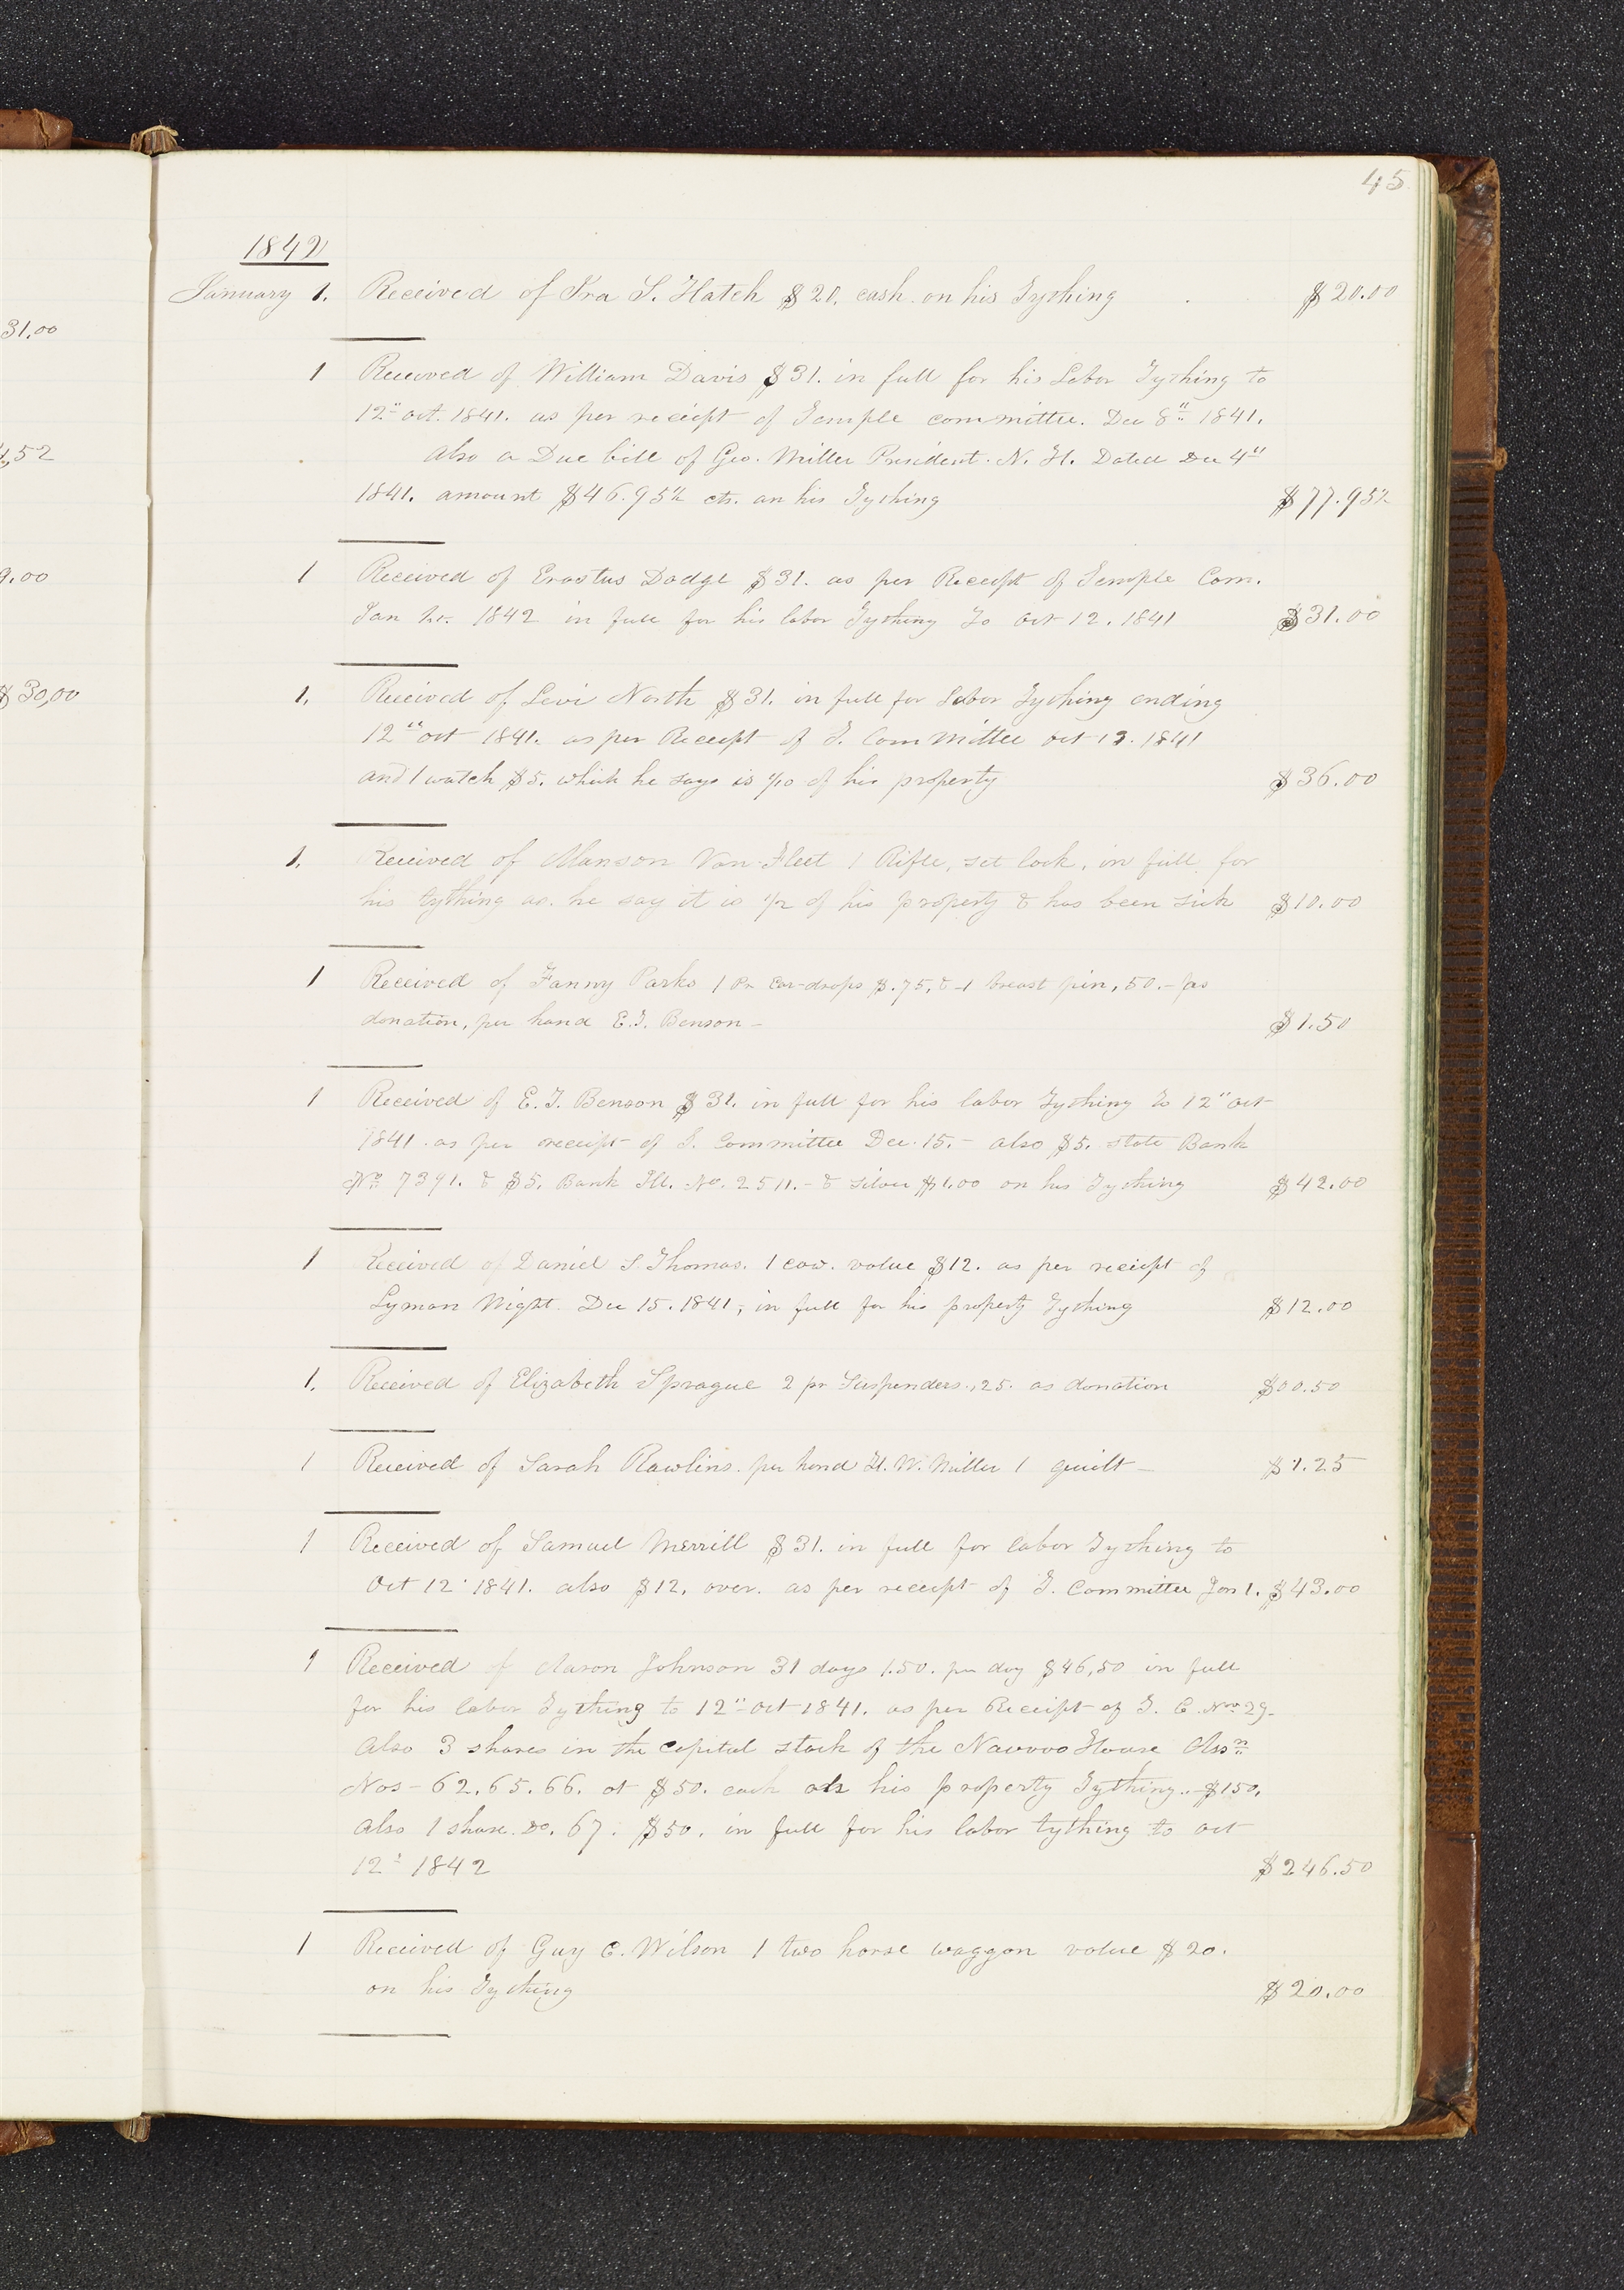 45
1842
31,00
,52
9.00
$30,00
January 1. Received of Ira S. Hatch $20. cash on his Tything $20.00
1 Received of William Davis $31. in full for his Labor Tything to
12" oct. 1841. as per receipt of Temple committee. Dec 8" 1841.
also a Due bill of Geo. Miller President. N. H. Dated Dec 4"
1841. amount $46.95½ cts. on his Tything $77.95½
1 Received of Erastus Dodge $31. as per Receipt of Temple Com.
Jan 1st 1842 in full for his labor Tything To Oct 12. 1841 $31.00
1. Received of Levi North $31. in full for Labor Tything ending
12" oct 1841. as per Receipt of T. Committee oct 12. 1841
and 1 watch $5. which he says is 1/10 of his property $36.00
1. Received of Alanson Van-Fleet 1 Rifle, set lock, in full for
his tything as. he say it is ½ of his property & has been sick $10.00
1 Received of Fanny Parks 1 Pr Ear-drops $.75, & 1 breast pin, 50.- as
donation, per hand E.T. Benson - $1.50
1 Received of E. T. Benson $31. in full for his labor Tything to 12" oct
1841. as per receipt of T. Committee Dec. 15. - also $5. state Bank
No. 7391. & $5. Bank Ill. No. 2511. - & silver $1.00 on his Tything $42.00
1 Received of Daniel S. Thomas. 1 cow. value $12. as per receipt of
Lyman Wight. Dec 15. 1841, in full for his property Tything $12.00
1. Received of Elizabeth Sprague 2 pr Suspenders., 25. as donation $00.50
1 Received of Sarah Rawlins. per hand H. W. Miller 1 quilt - $1.25
1 Received of Samuel Merrill $31. in full for labor Tything to
Oct 12. 1841. also $12. over. as per receipt of T. Committee Jan 1. $43.00
1 Received of Aaron Johnson 31 days 1.50. per day $46,50 in full
for his labor Tything to 12" Oct 1841. as per Receipt of T. C. Nov 29.
also 3 shares in the Capital stock of the Nauvoo House Assn
Nos - 62. 65. 66. at $50. each on his property Tything.. $150.
also 1 share. Do. 67. $50. in full for his labor tything to oct
12" 1842 $246.50
1 Received of Guy C. Wilson 1 two horse waggon value $20.
on his Tything $20.00